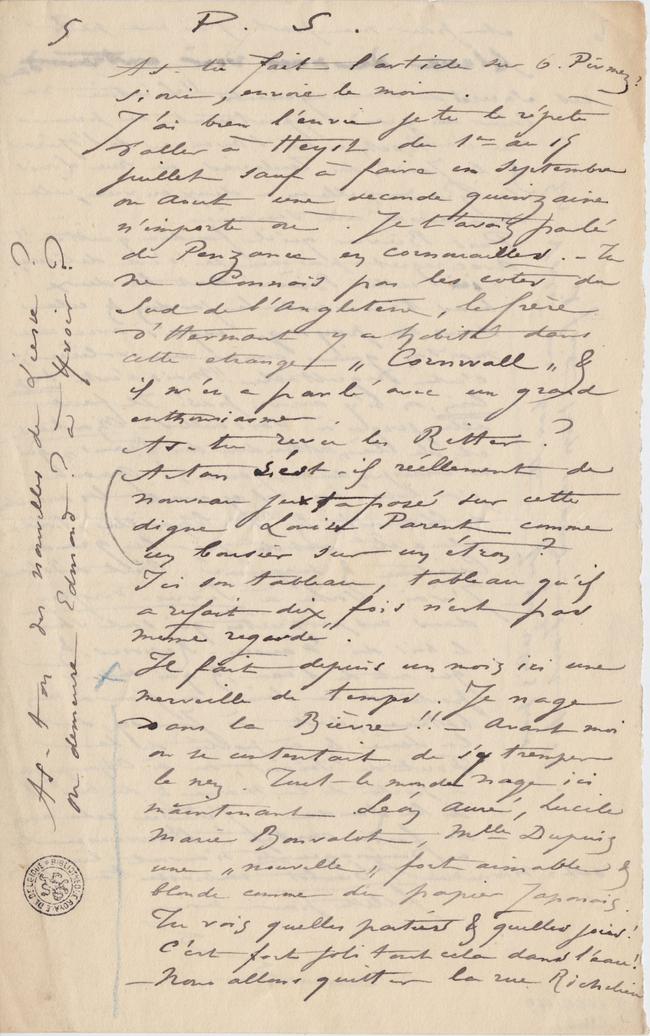 5 P. S.
As-tu fait l'article sur O. Pirmez?
si oui, envoie le moi.
J'ai bien l'envie je te le répète
d'aller à Heyst du 1er au 15
juillet sauf à faire en septembre
ou Août une seconde quinzaine
n'importe où. Je t'avais parlé
de Penzance en cornouailles. - Tu
ne Connais pas les côtes du
Sud de l'Angleterre, le frère
d'Hermant y a habité dans
cette etrange „ Cornwall „ &
il m'en a parlé avec un grand
enthousiasme
As-tu revu les Ritter?
Artan s'est-il réellement de
nouveau juxtaposé sur cette
digne Louise Parent comme
un bousier sur un étron?
Ici son tableau, tableau qu'il
a refait dix fois n'est pas
même regardé.
Il fait depuis un mois ici une
merveille de temps. Je nage
dans la Bièvre!! - Avant moi
on se contentait de s'y tremper
le nez. Tout le monde nage ici
maintenant Léon, Aure, Lucile
Marie Bonvalot, Mlle Dupuis
une „ nouvelle „ fort aimable &
blonde comme du papier Japonais.
Tu vois quelles parties & quelles joies!
C'est fort joli tout cela dans l'eau!
- Nous allons quitter la rue Richelieu
As-t-on des nouvelles de Liesse?
où demeure Edmond? à
BIBLIOTHEQUE ROYALE DE BELGIQUE